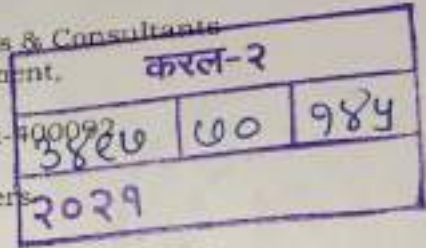 s & Consultants
ent,
करल-२
-400092
३४९७ ७० १४५
ers
२०२१